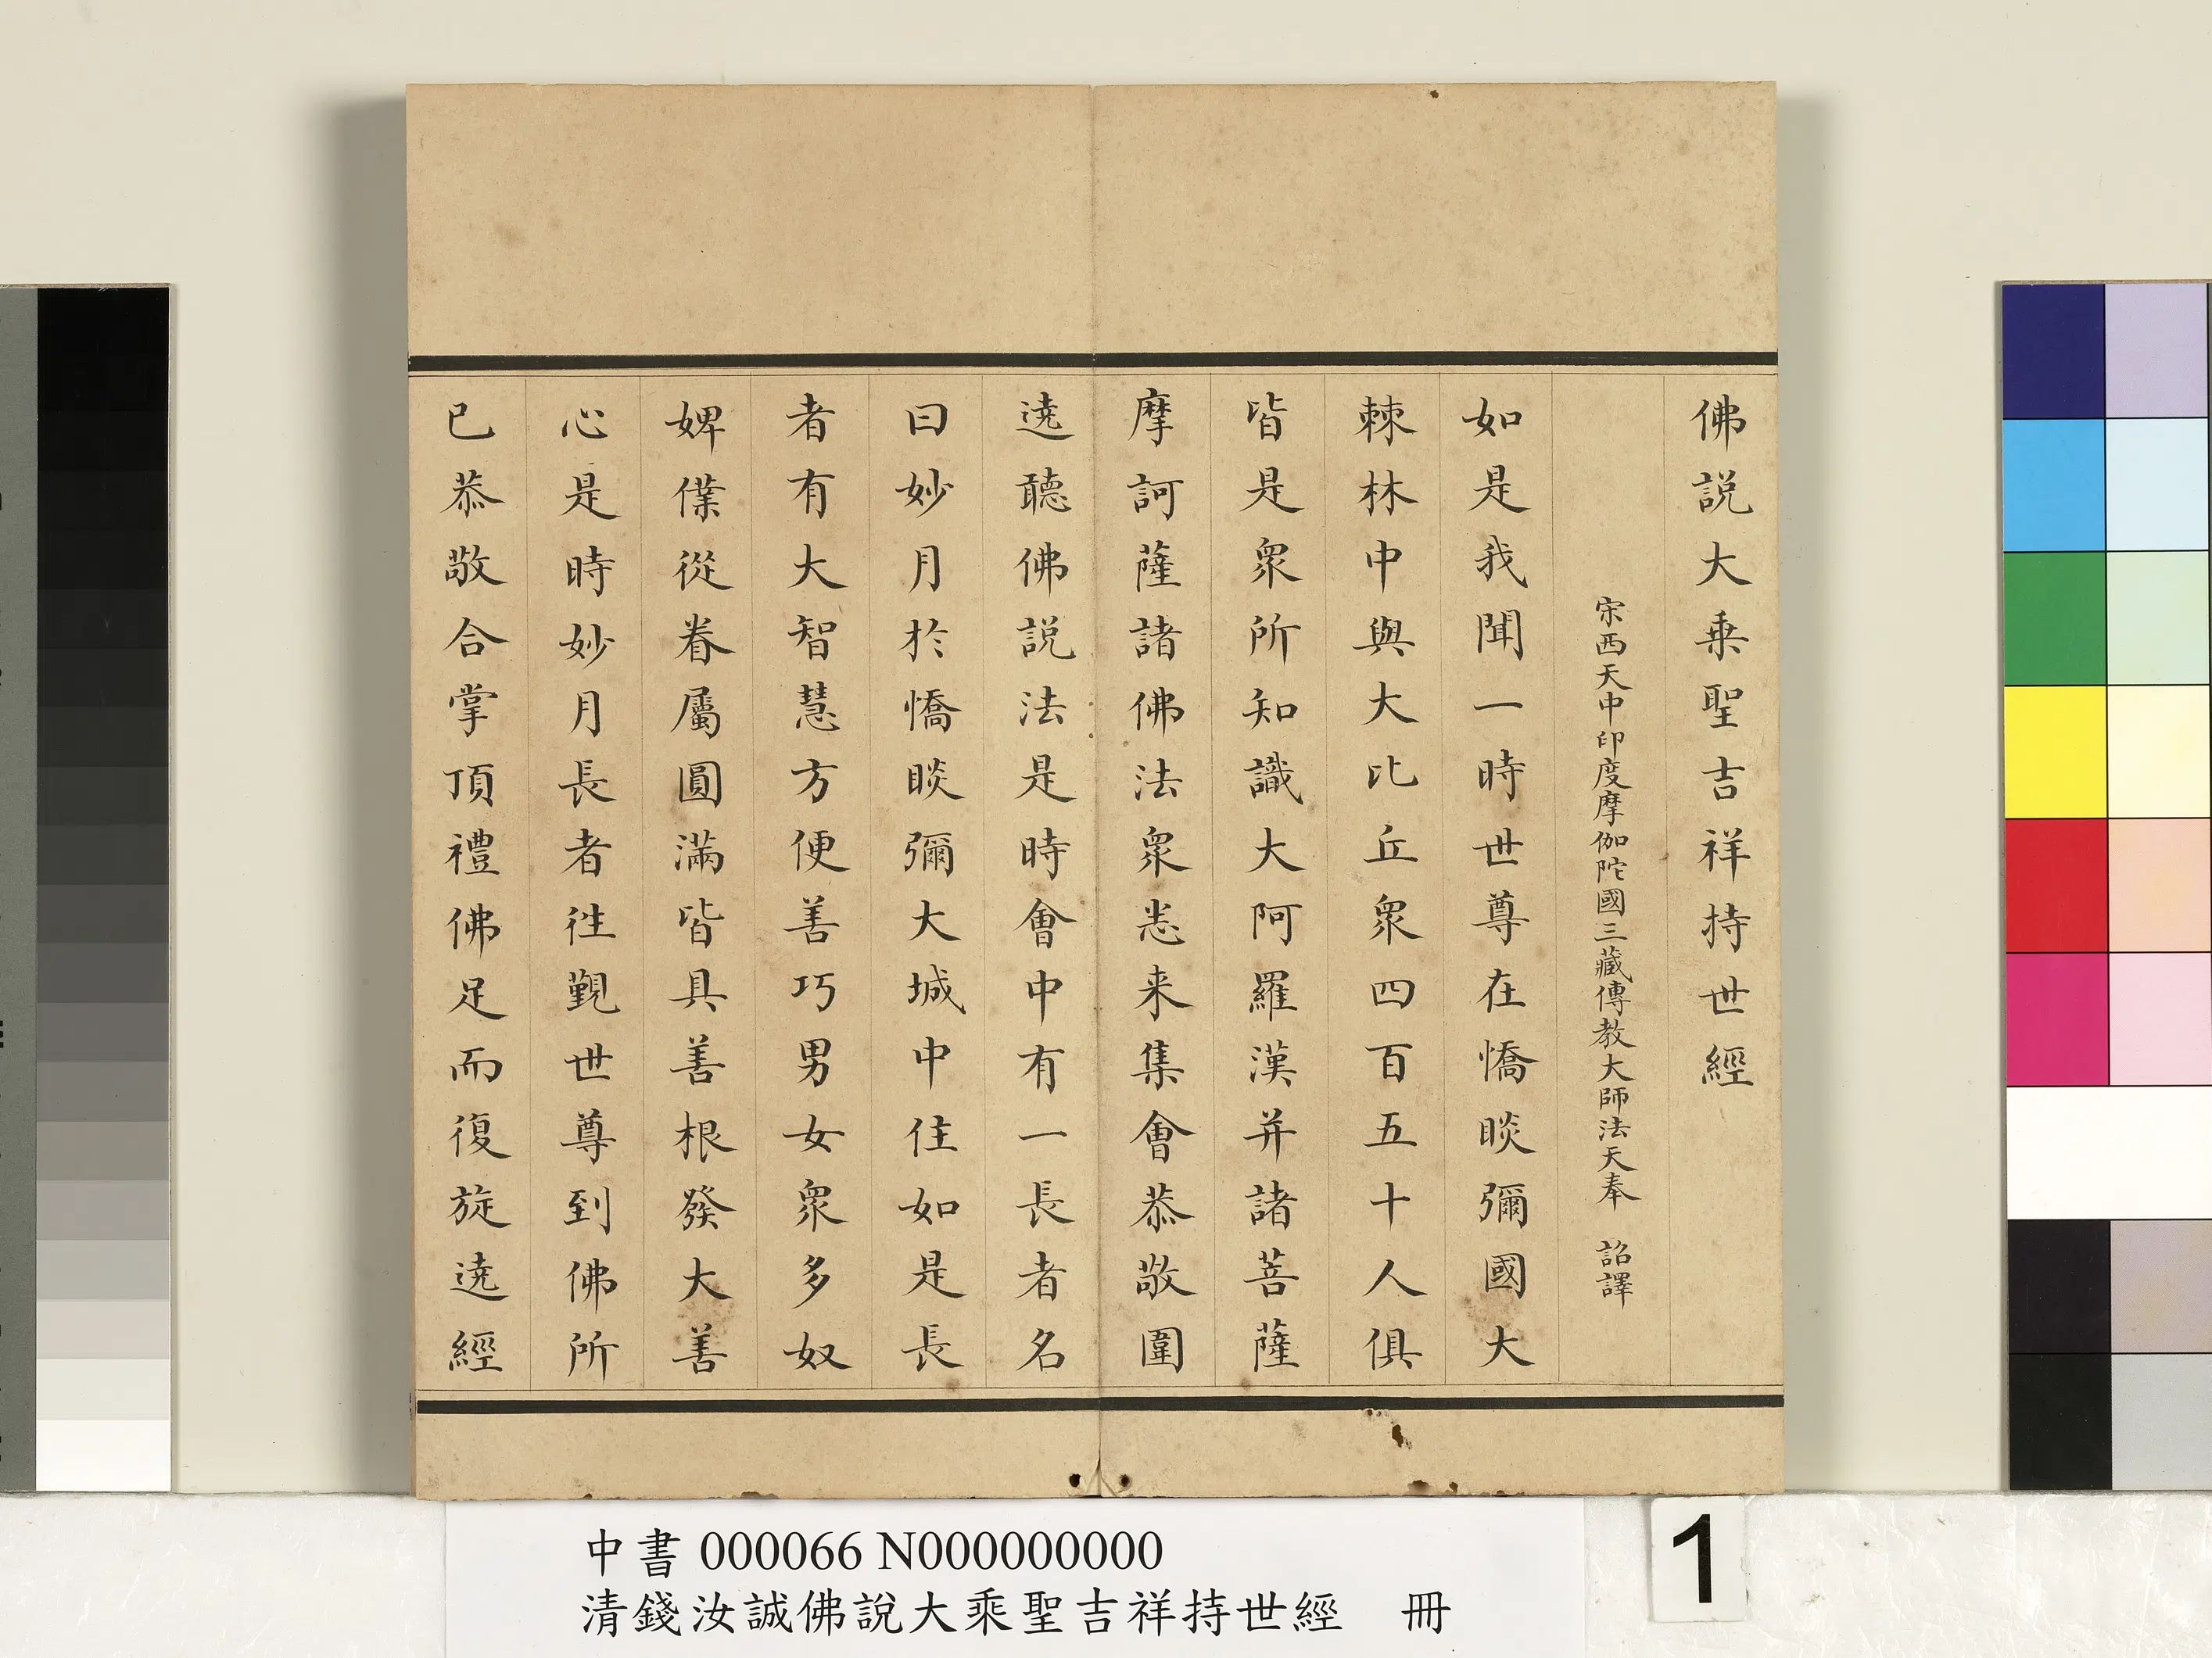 佛說大乗聖吉祥持世經
宋西天中印度摩伽陀國三藏傳教大師法天奉　詔譯
如是我聞一時世尊在憍睒彌國大
棘林中與大比丘衆四百五十人俱
皆是衆所知識大阿羅漢并諸菩薩
摩訶薩諸佛法衆悉来集會恭敬圍
遶聽佛說法是時會中有一長者名
曰妙月於憍睒彌大城中住如是長
者有大智慧方便善巧男女衆多奴
婢僕從眷屬圓滿皆具善根發大善
心是時妙月長者徃覲世尊到佛所
已恭敬合掌頂禮佛足而復旋遶經
中書 000066 N000000000
清錢汝誠佛說大乘聖吉祥持世經　冊
1